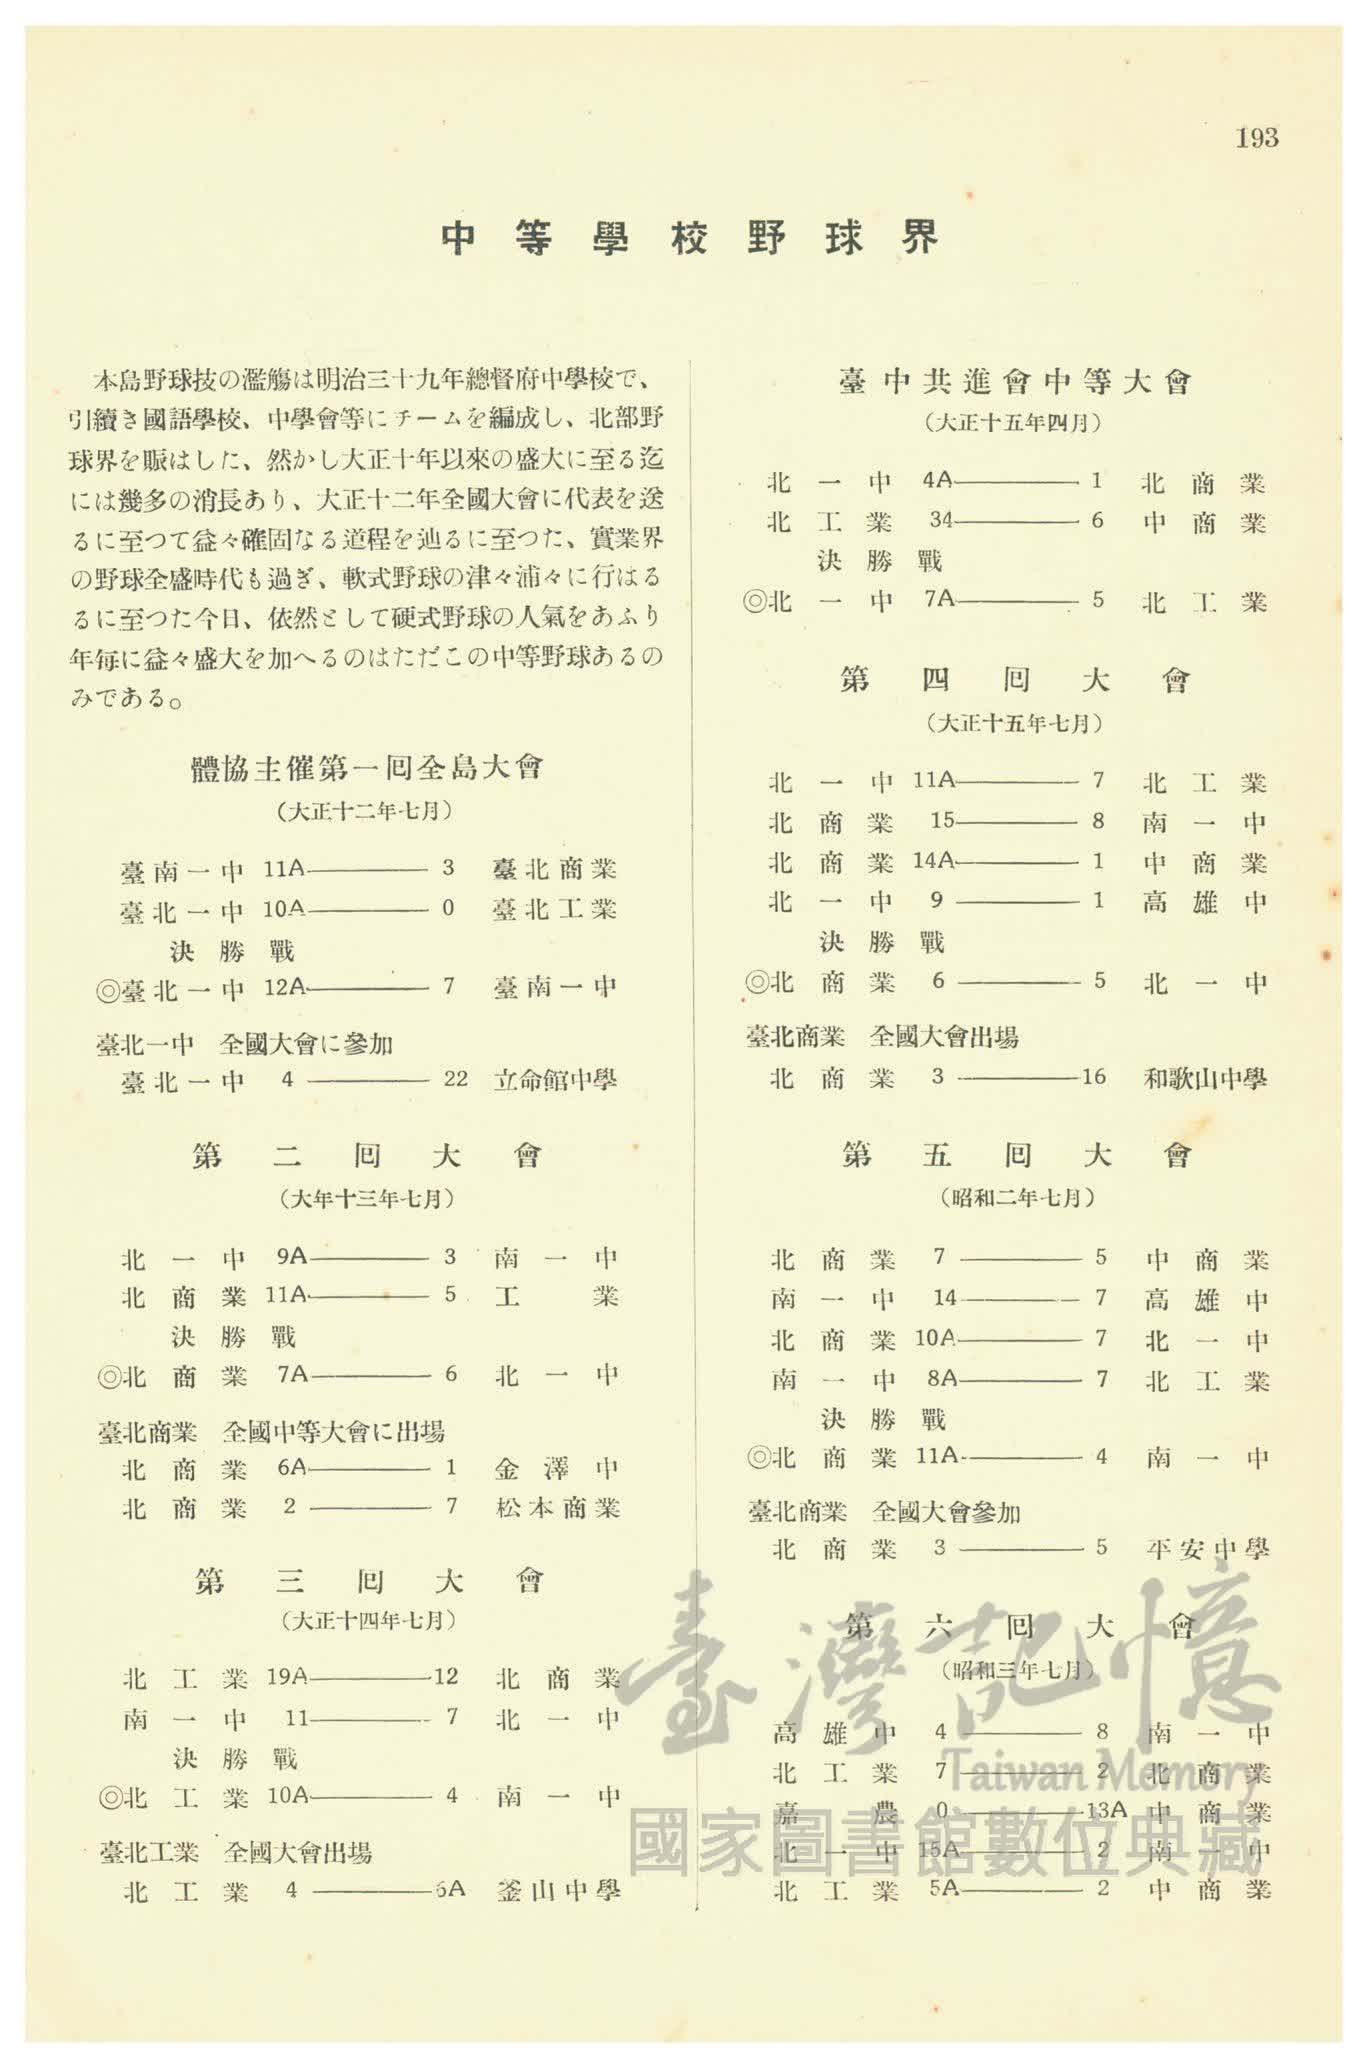 193
中等學校野球界
本島野球技の濫觴は明治三十九年總督府中學校で、
引續き國語學校、中學會等にチームを編成し、北部野
球界を賑はした、然かし大正十年以來の盛大に至る迄
には幾多の消長あり、大正十二年全國大會に代表を送
るに至つて益々確固なる道程を辿るに至つた、實業界
の野球全盛時代も過ぎ、軟式野球の津々浦々に行はる
るに至つた今日、依然として硬式野球の人氣をあふり
年每に益々盛大を加へるのはただこの中等野球あるの
みである。
體協主催第一囘全島大會
(大正十二年七月)
臺南一中 11A——3 臺北商業
臺北一中 10A——0 臺北工業
決勝戰
◎臺北一中 12A——7 臺南一中
臺北一中 全國大會に參加
臺北一中 4——22 立命館中學
第二囘大會
(大年十三年七月)
北一中 9A——3 南一中
北商業 11A——5 工業
決勝戰
◎北商業 7A——6 北一中
臺北商業 全國中等大會に出場
北商業 6A——1 金澤中
北商業 2——7 松本商業
第三囘大會
(大正十四年七月)
北工業 19A——12 北商業
南一中 11——7 北一中
決勝戰
◎北工業 10A——4 南一中
臺北工業 全國大會出場
北工業 4——6A 釜山中學
臺中共進會中等大會
(大正十五年四月)
北一中 4A——1 北商業
北工業 34——6 中商業
決勝戰
◎北一中 7A——5 北工業
第四囘大會
(大正十五年七月)
北一中 11A——7 北工業
北商業 15——8 南一中
北商業 14A——1 中商業
北一中 9——1 高雄中
決勝戰
◎北商業 6——5 北一中
臺北商業 全國大會出場
北商業 3——16 和歌山中學
第五囘大會
(昭和二年七月)
北商業 7——5 中商業
南一中 14——7 高雄中
北商業 10A——7 北一中
南一中 8A——7 北工業
決勝戰
◎北商業 11A——4 南一中
臺北商業 全國大會參加
北商業 3——5 平安中學
第六囘大會
(昭和三年七月)
高雄中 4——8 南一中
北工業 7——2 北商業
嘉農 0——13A 中商業
北一中 15A——2 南一中
北工業 5A——2 中商業
臺灣記憶
Taiwan Memory
國家圖書館數位典藏